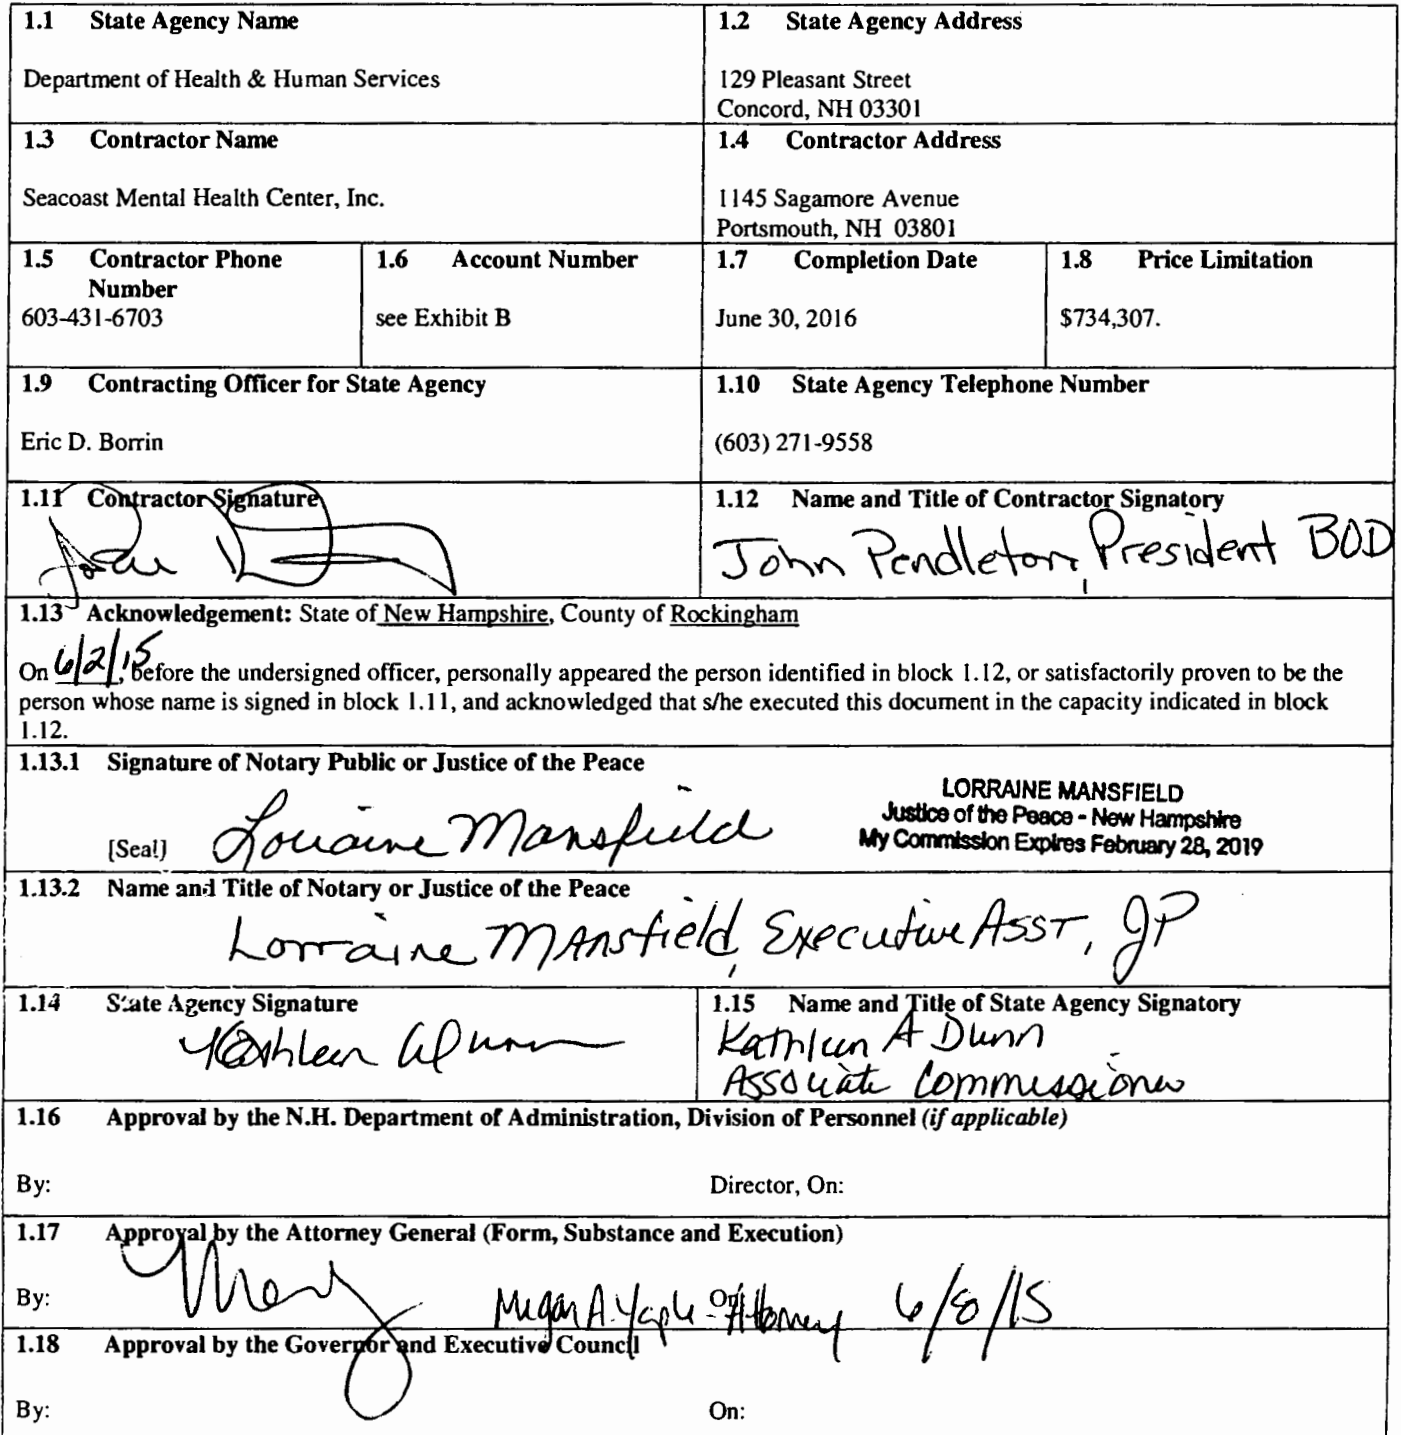 1.1 State Agency Name
Department of Health & Human Services
1.2 State Agency Address
129 Pleasant Street
Concord, NH 03301
1.3 Contractor Name
Seacoast Mental Health Center, Inc.
1.4 Contractor Address
1145 Sagamore Avenue
Portsmouth, NH 03801
1.5 Contractor Phone
Number
603-431-6703
1.6 Account Number
see Exhibit B
1.7 Completion Date
June 30, 2016
1.8 Price Limitation
$734,307.
1.9 Contracting Officer for State Agency
Eric D. Borrin
1.10 State Agency Telephone Number
(603) 271-9558
1.11 Contractor Signature
1.12 Name and Title of Contractor Signatory
John Pendleton, President BOD
1.13 Acknowledgement: State of New Hampshire, County of Rockingham
On 6/2/15, before the undersigned officer, personally appeared the person identified in block 1.12, or satisfactorily proven to be the
person whose name is signed in block 1.11, and acknowledged that s/he executed this document in the capacity indicated in block
1.12.
1.13.1 Signature of Notary Public or Justice of the Peace
LORRAINE MANSFIELD
Justice of the Peace - New Hampshire
My Commission Expires February 28, 2019
[Seal] Lorraine Mansfield
1.13.2 Name and Title of Notary or Justice of the Peace
Lorraine Mansfield, Executive Asst, JP
1.14 State Agency Signature
Kathleen A Dunn
1.15 Name and Title of State Agency Signatory
Kathleen A Dunn
Associate Commissioner
1.16 Approval by the N.H. Department of Administration, Division of Personnel (if applicable)
By: Director, On:
1.17 Approval by the Attorney General (Form, Substance and Execution)
By: Megan A. Yaple - Attorney On: 6/8/15
1.18 Approval by the Governor and Executive Council
By: On: